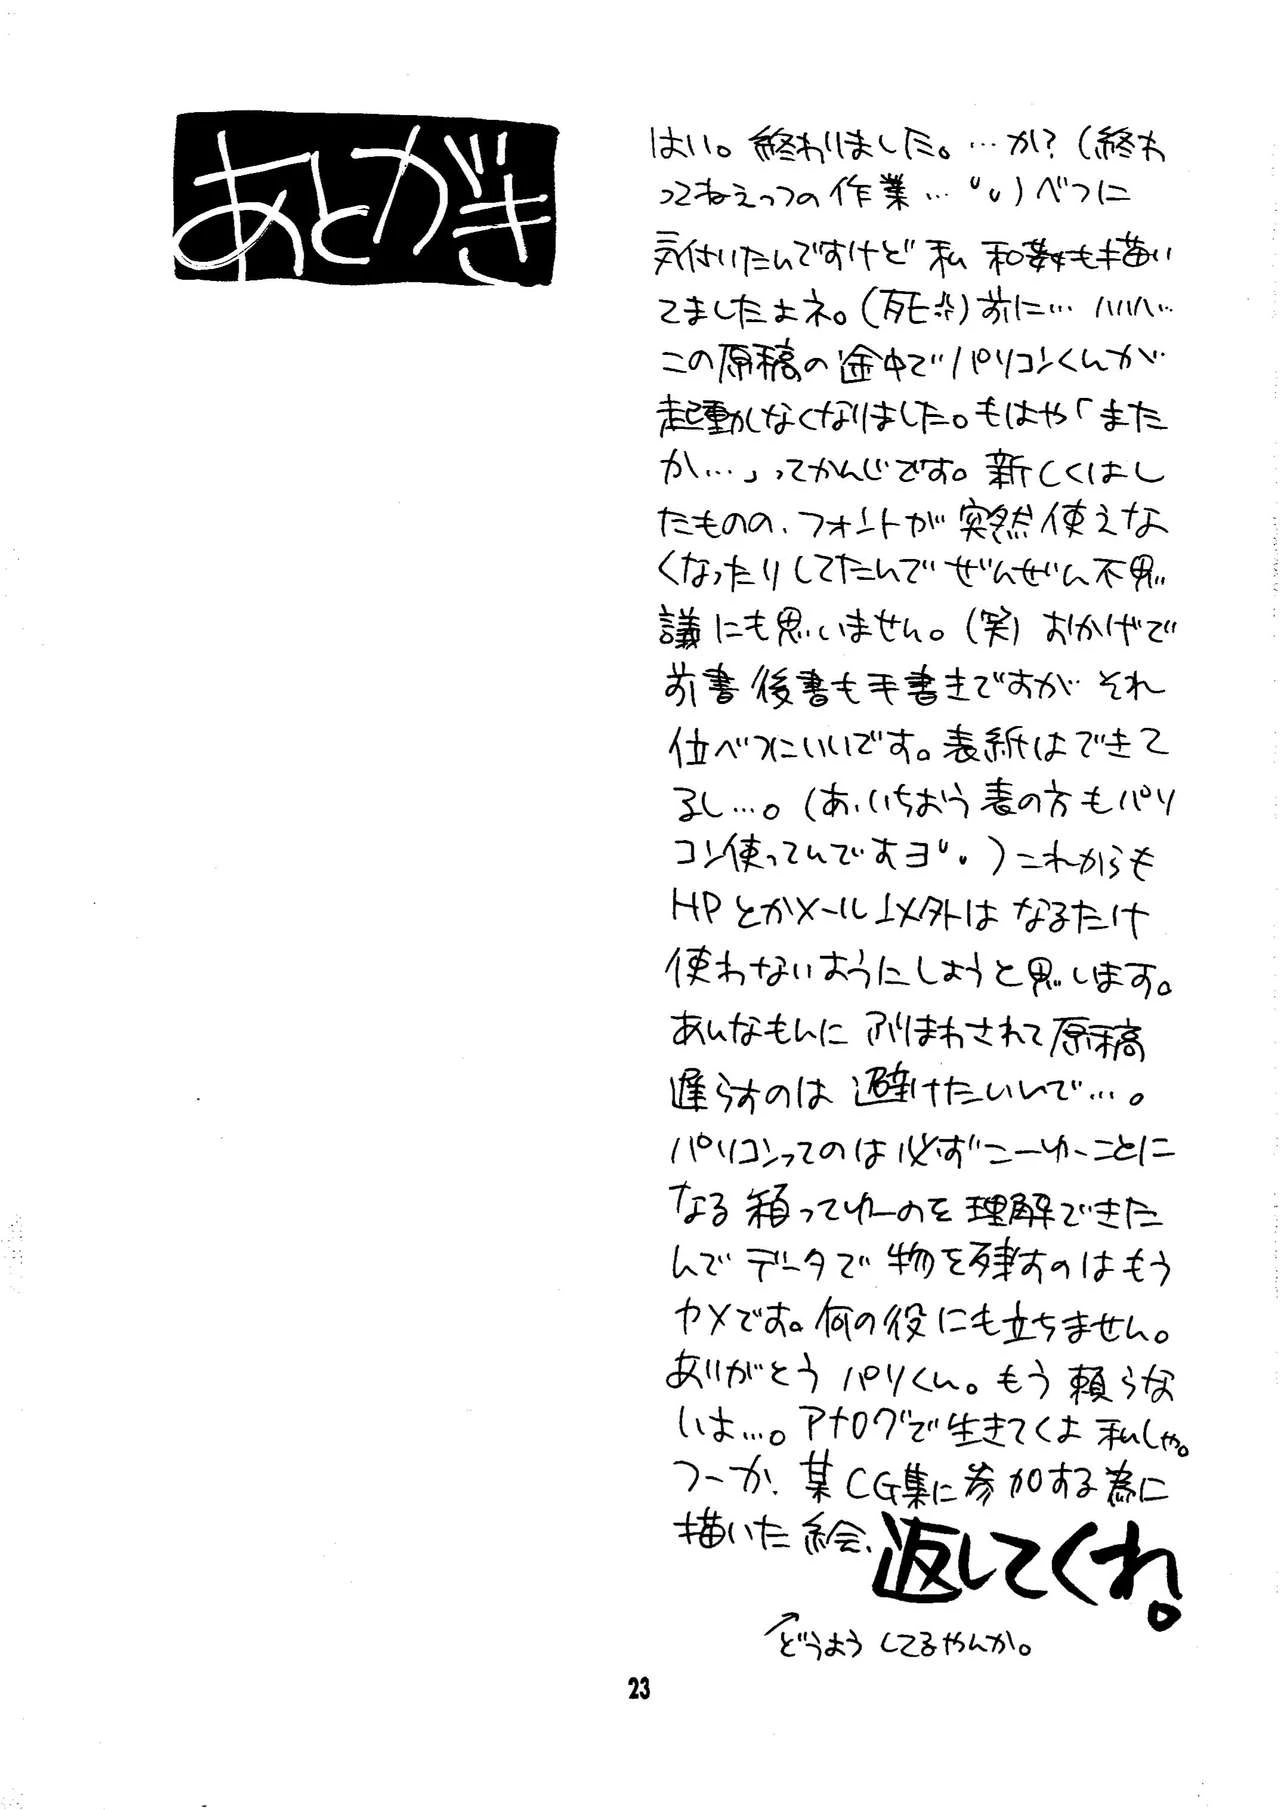 あとがき
はい。終わりました。…か?(終わ
ってねえっつの作業…)べつに
気付いたんですけど私 和姦も描い
てましたよネ。(死)前に…ハハハ…
この原稿の途中でパソコンくんが
起動しなくなりました。もはや「また
か…」ってかんじです。新しくはし
たものの、フォントが突然使えな
くなったりしてたんでぜんぜん不思
議にも思いません。(笑)おかげで
前書後書も手書きですが それ
位べつにいいです。表紙はできて
るし…。(あ、いちおう表の方もパソ
コン使ってんですヨ)これからも
HPとかメール以外は なるたけ
使わないようにしようと思います。
あんなもんに フリまわされて原稿
遅らすのは 避けたいんで…。
パソコンってのは必ずこーゆーことに
なる箱ってゆーのを理解できた
んでデータで物を残すのはもう
ヤメです。何の役にも立ちません。
ありがとうパソくん。もう頼らな
いよ…。アナログで生きてくよ私しゃ。
つーか、某CG集に参加する為に
描いた絵、返してくれ。
↗どうよう してるやんか。
23